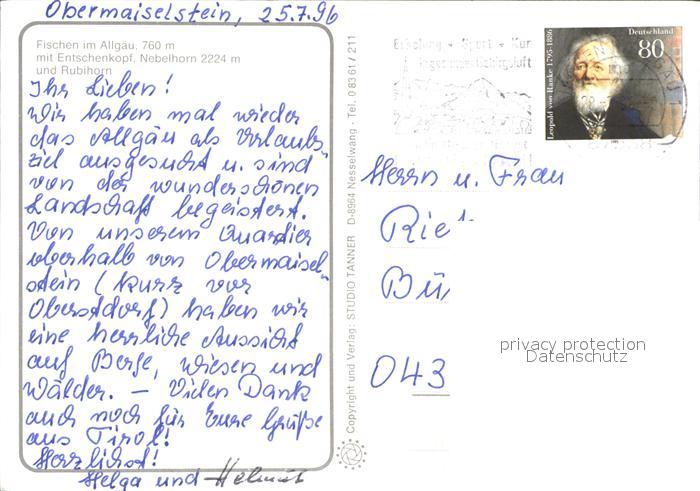 Obermaiselstein, 25.7.96
Fischen im Allgäu, 760 m
mit Entschenkopf, Nebelhorn 2224 m
und Rubihorn
Ihr Lieben!
Wir haben mal wieder
das Allgäu als Urlaubs-
ziel ausgesucht u. sind
von der wunderschönen
Landschaft begeistert.
Von unserem Quartier
oberhalb von Obermaisel-
stein (kurz vor
Oberstdorf) haben wir
eine herrliche Aussicht
auf Berge, Wiesen und
Wälder. – Vielen Dank
auch noch für Eure Grüße
aus Tirol!
Herzlichst!
Helga und Helmut
Copyright und Verlag: STUDIO TANNER D-8964 Nesselwang - Tel. 0 83 61 / 211
Erholung + Sport + Kur
Deutschland
80
Leopold von Ranke 1795-1886
Herrn u. Frau
Rie
Bü
043
privacy protection
Datenschutz